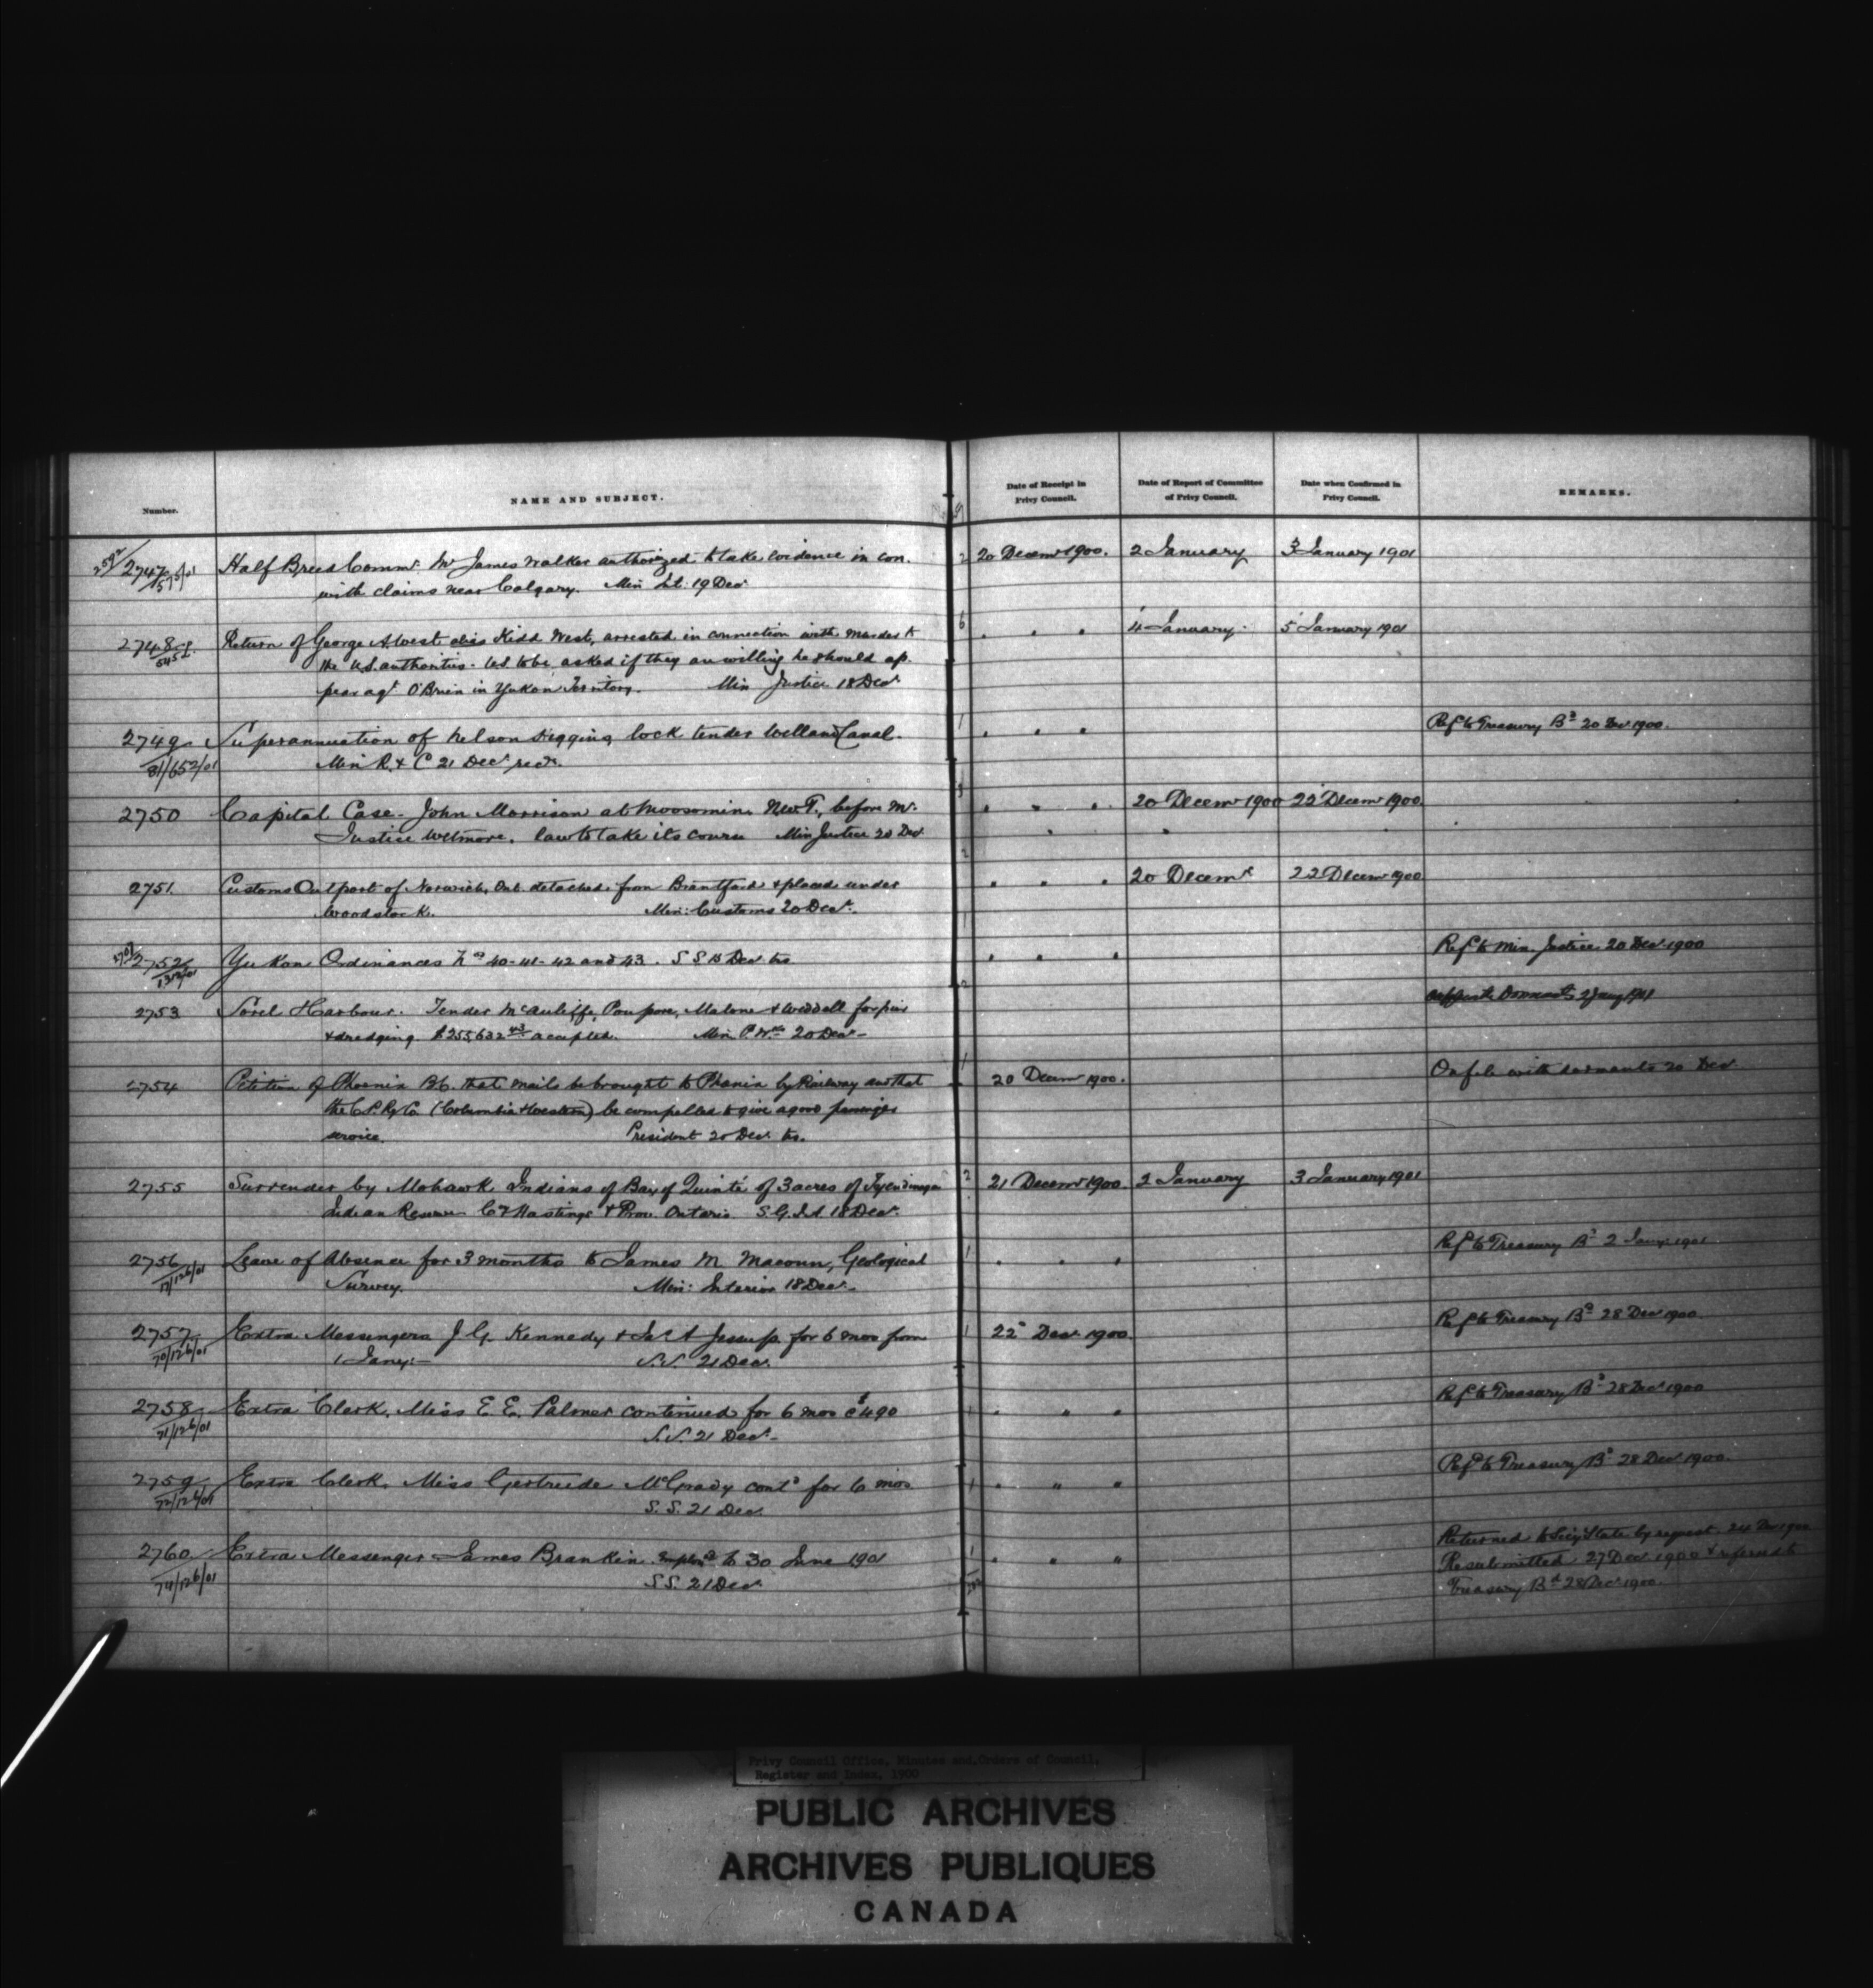 Number. NAME AND SUBJECT. Date of Receipt in Privy Council. Date of Report of Committee of Privy Council. Date when Confirmed in Privy Council. REMARKS.
2747 Half Breed Commn. Mr James Walker authorized to take evidence in con. 20 Decemr 1900. 2 January 3 January 1901
with claims near Calgary. Min Int. 19 Decr
2748 Return of George A West alias Kidd West, arrested in connection with murder to " " " 4 January 5 January 1901
the U.S. authorities. U.S. to be asked if they are willing he should ap.
pear agt O'Brien in Yukon Territory. Min Justice 18 Decr
2749 Superannuation of Nelson Higgins lock tender Welland Canal. " " " Refd to Treasury Bd 20 Decr 1900.
81/652/01 Min R. & C 21 Decr recd.
2750 Capital Case. John Morrison at Moosomin N.W.T., before Mr. " " " 20 Decemr 1900 22 Decemr 1900.
Justice Wetmore. law to take its course Min Justice 20 Decr
2751. Customs Outport of Norwich, Ont. detached from Brantford & placed under " " " 20 Decemr 22 Decemr 1900
Woodstock. Min: Customs 20 Decr.
2752 Yukon Ordinances Nos 40-41-42 and 43. S S 15 Decr trs " " " Refd to Min. Justice 20 Decr 1900
2753 Sorel Harbour. Tender McAuliffe, Poupore, Malone & Weddell for piers
& dredging $255,632 43 accepted. Min P. Wks 20 Decr -
2754 Petition of Phoenix B.C. that mails be brought to Phoenix by Railway and that 20 Decemr 1900. On file with dormants 20 Decr
the C.P. Ry Co. (Columbia & Western) be compelled to give a good passenger
service. President 20 Decr. trs.
2755 Surrender by Mohawk Indians of Bay of Quinté of 3 acres of Tyendinaga 21 Decemr 1900. 2 January 3 January 1901
Indian Reserve Co Hastings & Prov. Ontario S.G.I.A. 18 Decr.
2756 Leave of Absence for 3 months to James M. Macoun, Geological " " " Refd to Treasury Bd 2 Jany 1901
Survey. Min: Interior 18 Decr.
2757 Extra Messengers J. G. Kennedy & Jessup for 6 mos from 22 Decr. 1900. Refd to Treasury Bd 28 Decr 1900
70/126/01 1 Jany. S.S. 21 Decr.
2758 Extra Clerk, Miss E. E. Palmer continued for 6 mos @ $490 " " " Refd to Treasury Bd 28 Decr 1900
71/126/01 S.S. 21 Decr.
2759 Extra Clerk, Miss Gertrude McGrady contd for 6 mos " " " Refd to Treasury Bd 28 Decr 1900.
72/126/01 S.S. 21 Decr
2760 Extra Messenger James Brankin Employd to 30 June 1901 " " " Returned to Secy State by request 24 Decr 1900
74/126/01 S.S. 21 Decr Resubmitted 27 Decr 1900 & referred to
Treasury Bd 28 Decr 1900.
Privy Council Office, Minutes and Orders of Council,
Register and Index, 1900
PUBLIC ARCHIVES
ARCHIVES PUBLIQUES
CANADA